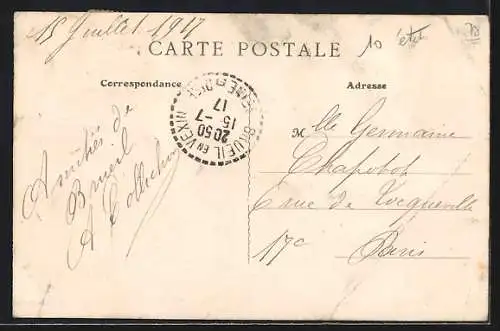 15 Juillet 1917
CARTE POSTALE
10
Correspondance
Adresse
BRUEIL EN VEXIN
20 50
15-7
17
SEINE ET OISE
Amitiés de
Brueil
Mlle Germaine
Chapobot
6 rue de Tocqueville
17e
Paris